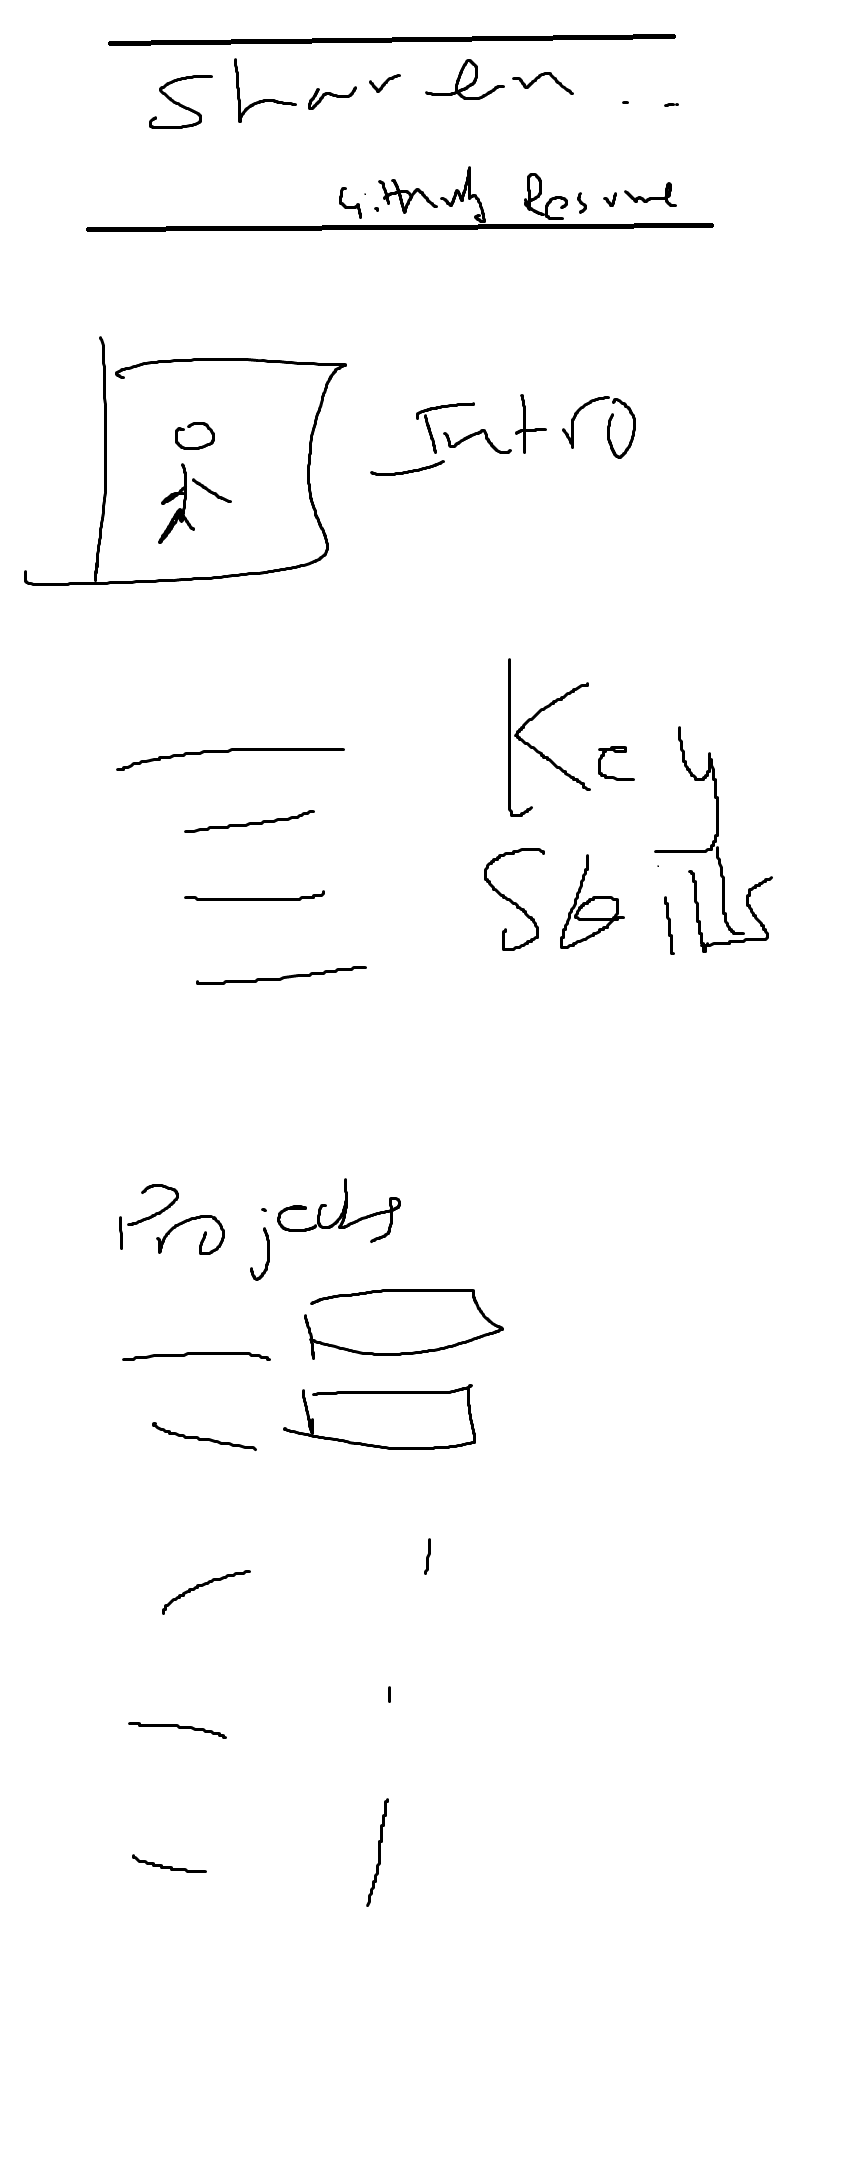 Sharen ...
Github Resume
Intro
Key
Skills
Projects